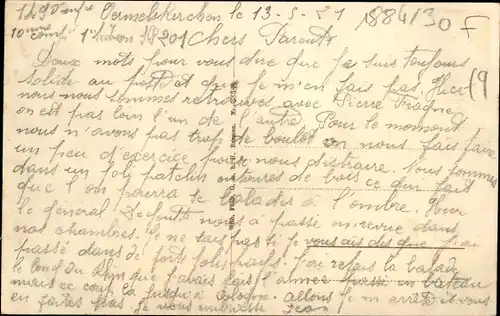 129e Infie Vermelskirchen le 13-5-21 1884/30 F
10ème Comp 1ère Section SP 201 Chers Parents
Deux mots pour vous dire que je suis toujours
solide au poste et que je m'en fais pas. Hier
nous nous sommes retrouvés avec Pierre
on est pas loin l'un de l'autre. Pour le moment
nous n'avons pas trop de boulot on nous fait faire
un peu d'exercice pour nous distraire. Nous sommes
dans un joli patelin entouré de bois ce qui fait
que l'on pourra se balader à l'ombre. Hier
le général nous a passé en revue dans
nos chambres. Je ne sais pas si je vous ai dit que j'ai
passé dans de forts jolis. J'ai refait la balade
le long du Rhin que j'avais fait l'année passée en bateau
mais ce coup là jusqu'à Cologne. Allons je m'arrête et vous
en faites pas. Je vous embrasse Jean